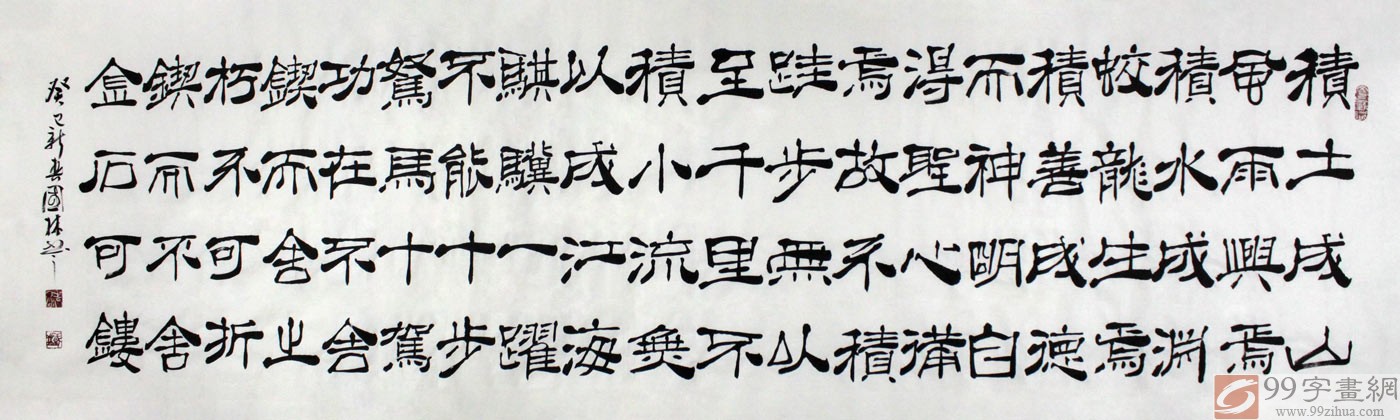 積土成山
風雨興焉
積水成淵
蛟龍生焉
積善成徳
而神明自
得聖心備
焉故不積
跬步無以
至千里不
積小流無
以成江海
騏驥一躍
不能十步
駑馬十駕
功在不舍
鍥而舍之
朽不可折
鍥而不舍
金石可鏤
癸巳新春國林
99字畫網
www.99zihua.com